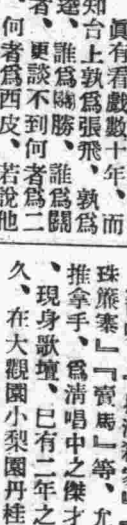 眞有看戲數十年、而
知台上孰爲張飛、孰爲
遶、誰爲關勝、誰爲關
者、更談不到何者爲二
何者爲西皮、若說他
珠簾寨』『賣馬』等、尤
推拿手、爲清唱中之傑才
、現身歌壇、已有二年之
久、在大觀園小梨園丹桂